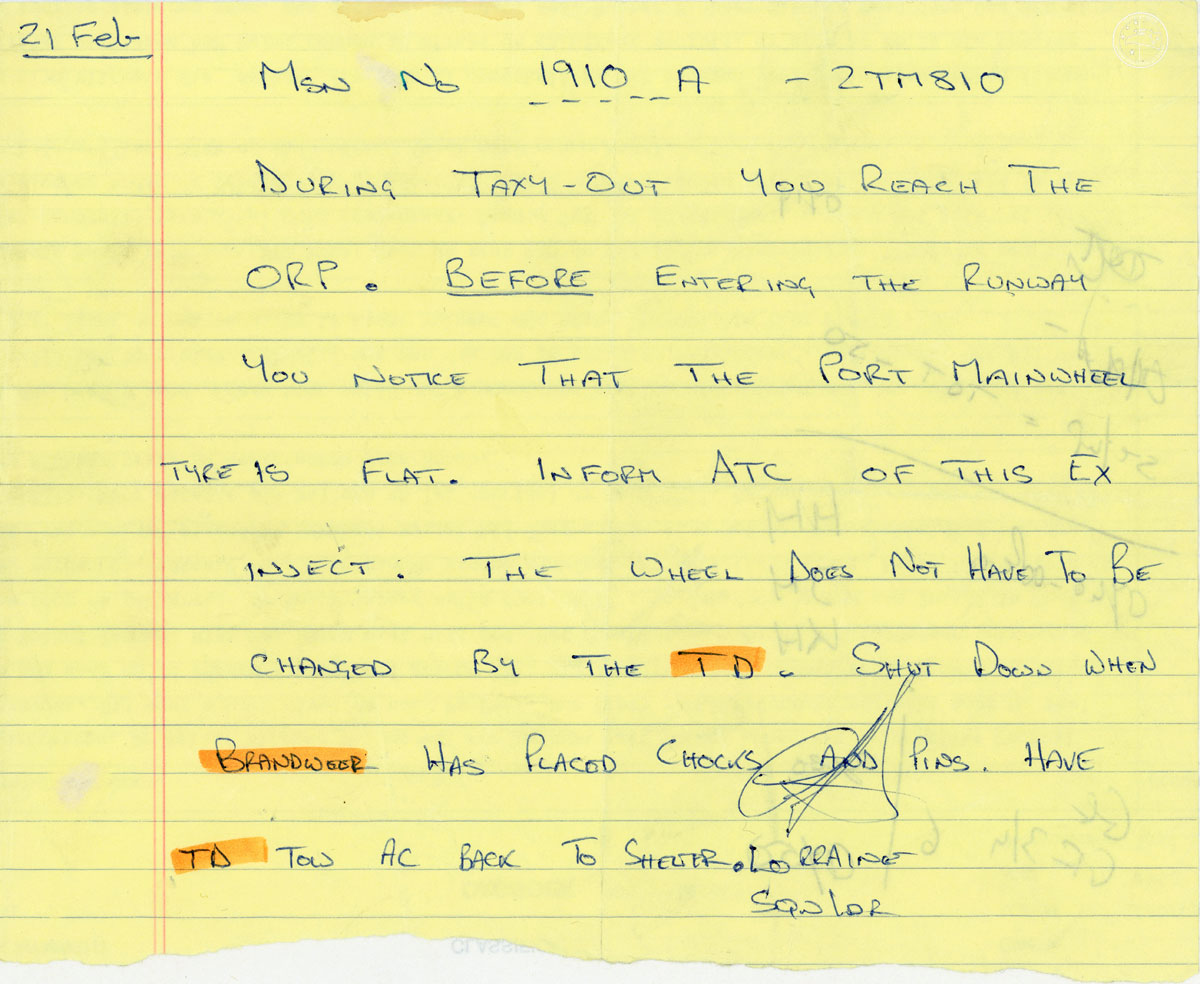 21 Feb
MSN NO 1910 A - 2TM810
DURING TAXY-OUT YOU REACH THE
ORP. BEFORE ENTERING THE RUNWAY
YOU NOTICE THAT THE PORT MAINWHEEL
TYRE IS FLAT. INFORM ATC OF THIS EX
INJECT. THE WHEEL DOES NOT HAVE TO BE
CHANGED BY THE TD. SHUT DOWN WHEN
BRANDWEER HAS PLACED CHOCKS AND PINS. HAVE
TD TOW AC BACK TO SHELTER. LORRAINE
SQN LDR